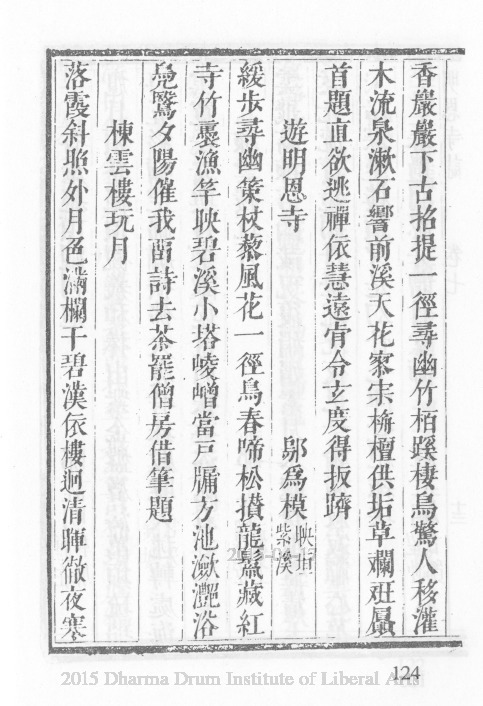 香嚴嚴下古招提一徑尋幽竹栢蹊棲鳥驚人移灌
木流泉漱石響前溪天花寥宋旃檀供垢草斕斑屭
首題直欲逃禪依慧遠肯令玄度得扳躋
遊明恩寺 鄔爲模 映垣 紫溪
緩步尋幽策杖藜風花一徑鳥春啼松攢龍鬣藏紅
寺竹裊漁竿映碧溪小塔崚嶒當戸牖方池瀲灧浴
鳧鷖夕陽催我畱詩去茶罷僧房借筆題
棟雲樓玩月
落霞斜照外月色滿欄干碧漢依樓迥清暉徹夜寒
124
2015 Dharma Drum Institute of Liberal Arts